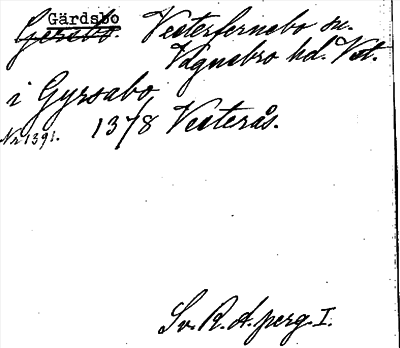 Gärdsbo
Gersbo. Vesterfernebo sn.
Vagnsbro hd. Vst.
i Gyrsabo
Nr 1391. 1378 Vesterås.
Sv. R. A. perg. I.